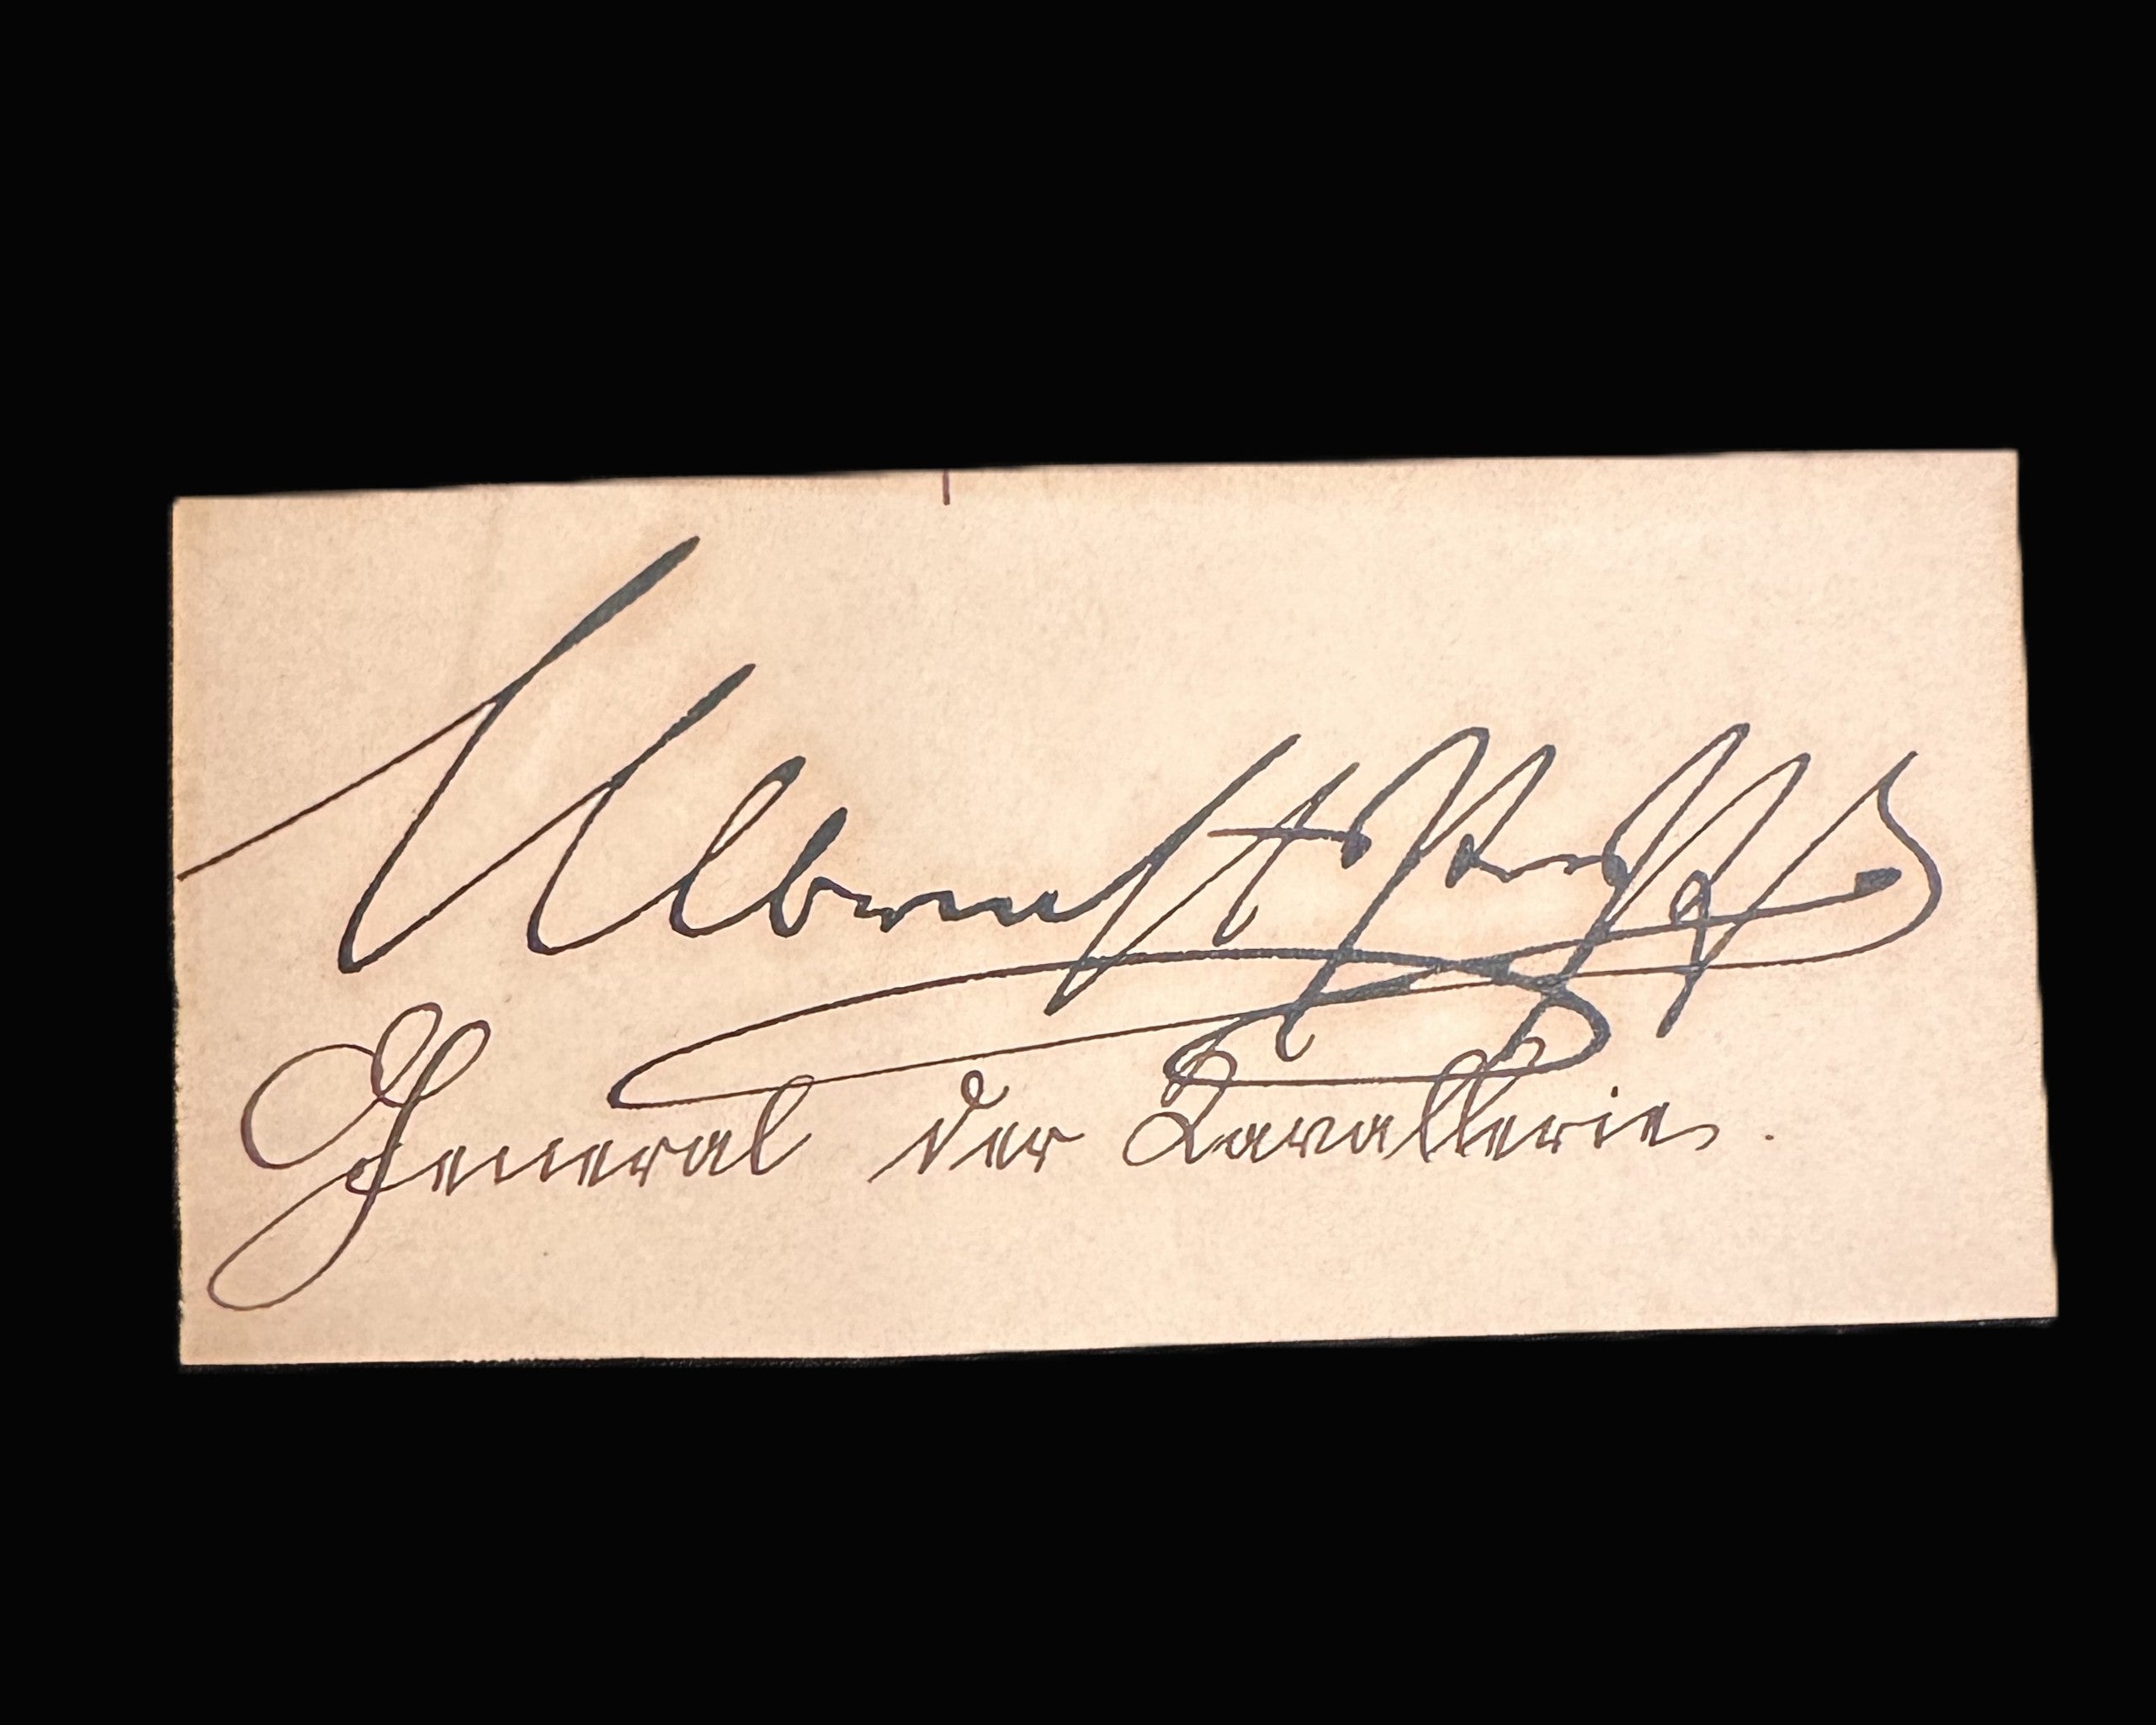 Albrecht
General der Cavallerie.